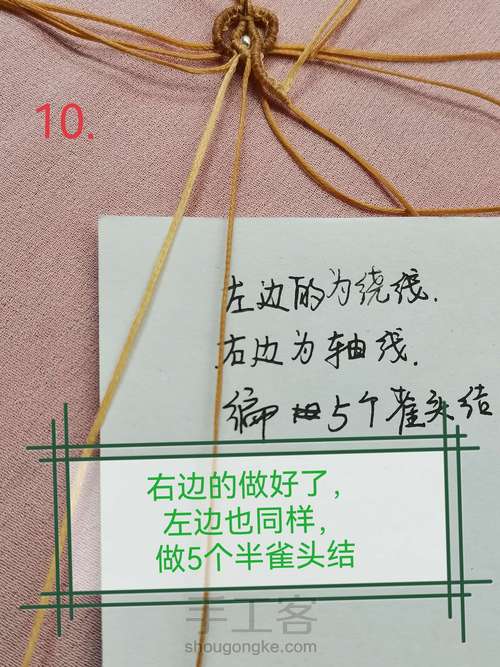 10.
左边的为绕线.
右边为轴线.
编 5个雀头结
右边的做好了，
左边也同样，
做5个半雀头结
手工客
shougongke.com